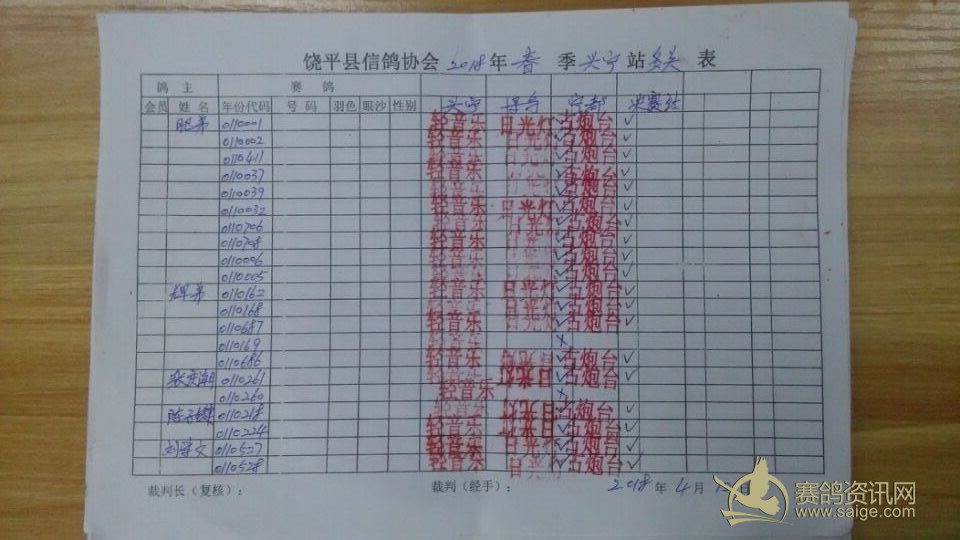 饶平县信鸽协会2018年春季兴宁站多关表
鸽主 赛鸽
会员 姓名 年份代码 号码 羽色 眼沙 性别 兴宁 宁都
肥弟 0110001 轻音乐 日光灯 ✓ 古炮台 ✓
0110002 轻音乐 日光灯 ✓ 古炮台 ✓
0110411 轻音乐 日光灯 ✓ 古炮台 ✓
0110037 轻音乐 ✓ 古炮台 ✓
0110039 轻音乐 ✓ 古炮台 ✓
0110032 轻音乐 日光灯 ✓ 古炮台 ✓
0110706 轻音乐 日光灯 ✓ 古炮台 ✓
0110708 轻音乐 ✓ 古炮台 ✓
0110006 轻音乐 ✓ 古炮台 ✓
0110005 轻音乐 ✓ 古炮台 ✓
辉弟 0110162 轻音乐 日光灯 ✓ 古炮台 ✓
0110168 轻音乐 日光灯 ✓ 古炮台 ✓
0110687 轻音乐 日光灯 ✓ 古炮台 ✓
0110169 轻音乐 ×
0110686 轻音乐 日光灯 ✓ 古炮台 ✓
0110261 轻音乐 日光灯 ✓ 古炮台 ✓
0110260 轻音乐 ×
0110218 轻音乐 日光灯 ✓ 古炮台 ✓
0110224 轻音乐 日光灯 ✓ 古炮台 ✓
0110527 轻音乐 日光灯 ✓ 古炮台 ✓
0110528 轻音乐 日光灯 ✓ 古炮台 ✓
裁判长（复核）： 裁判（经手）： 2018年4月 日
赛鸽资讯网
www.saige.com